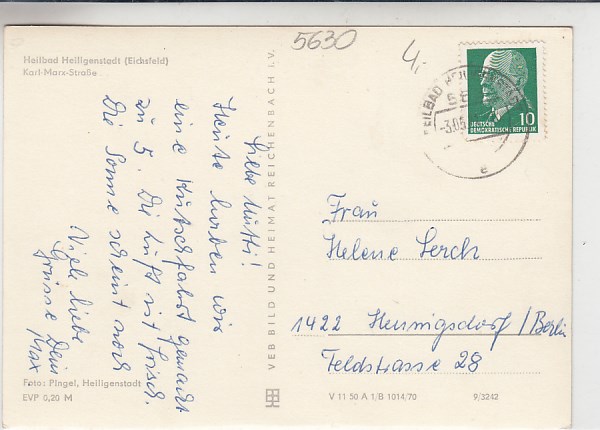 5630
4,
Heilbad Heiligenstadt (Eichsfeld)
Karl-Marx-Straße
Liebe Mutti!
Heute haben wir
eine Kutschfahrt gemacht
zu 5. Die Luft ist frisch.
Die Sonne scheint noch
Viele liebe
Grüsse Dein
Max
Foto: Pingel, Heiligenstadt
EVP 0,20 M
VEB BILD UND HEIMAT REICHENBACH I. V.
HEILBAD HEILIGENSTADT
-3.05
e
10
DEUTSCHE
DEMOKRATISCHE REPUBLIK
Frau
Helene Lerch
1422 Hennigsdorf/Berlin
Feldstrasse 28
V 11 50 A 1/B 1014/70
9/3242